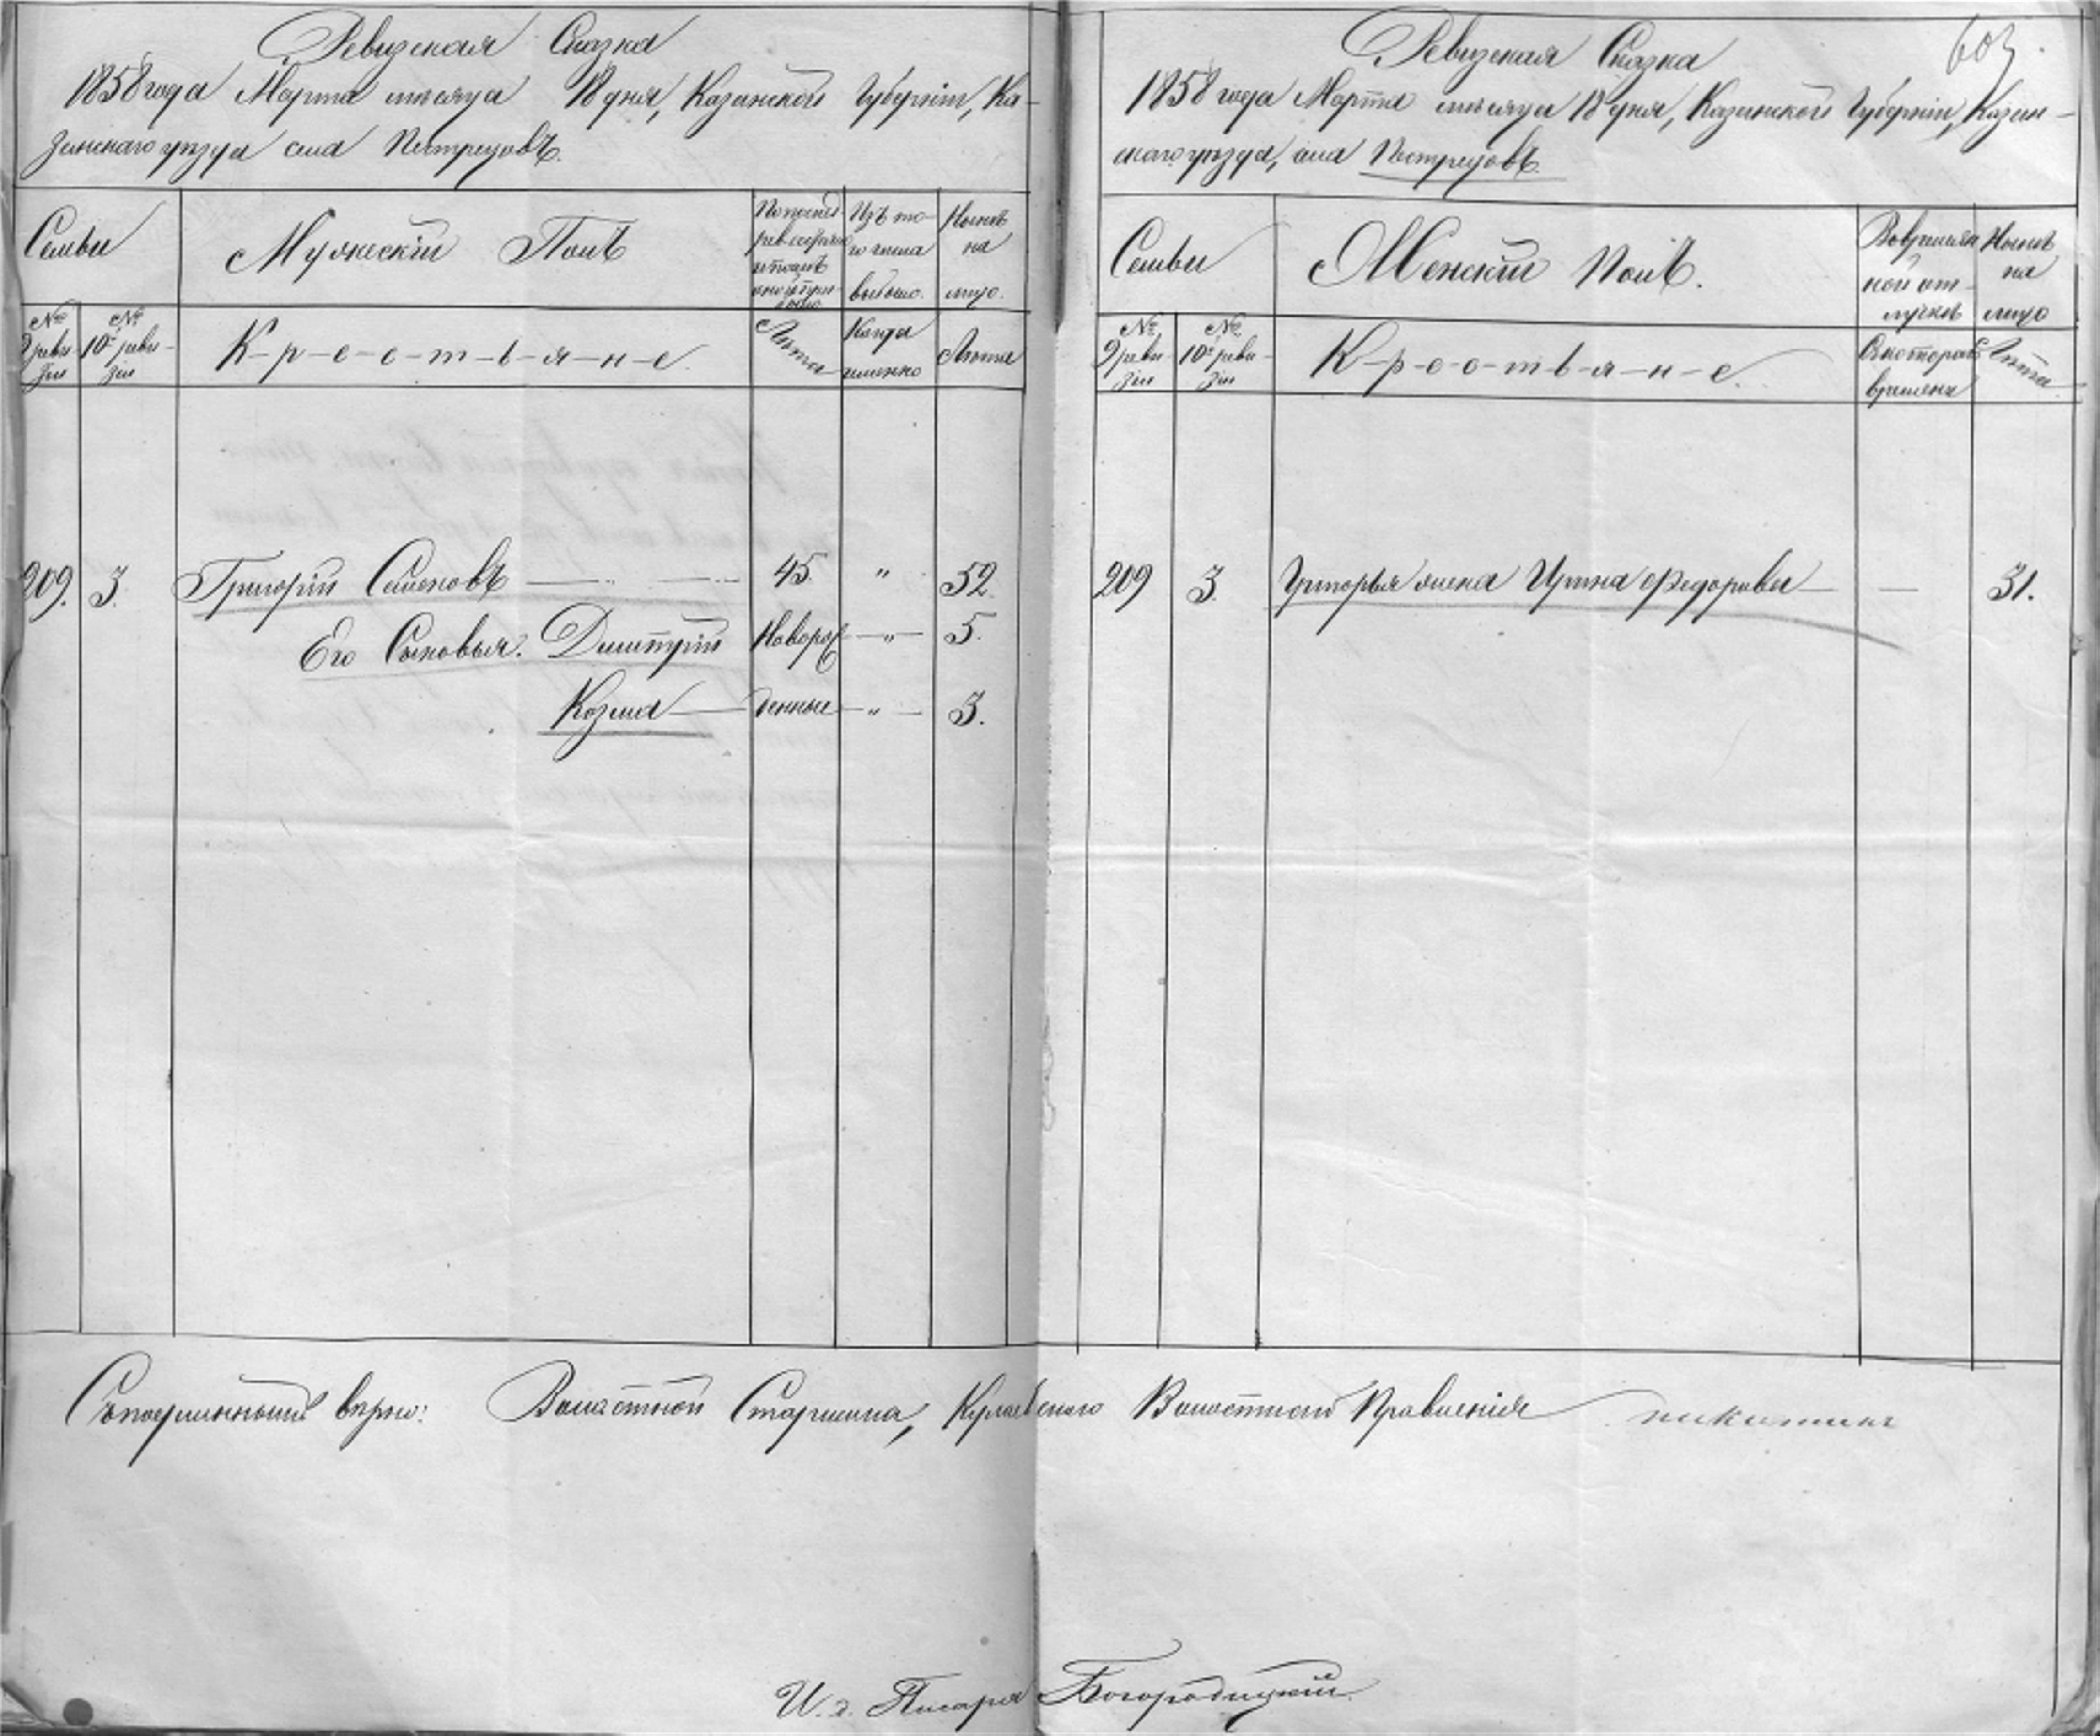 Ревизская Сказка
1858 года Марта месяца 18 дня, Казанской Губернiи, Ка-
занскаго уѣзда села Пестрецовъ.
Семьи
Мужескiй Полъ
По послед-
ней ревизiи
состояло
и после
оной прибы-
ло
Изъ то-
го числа
выбыло.
Нынѣ
на
лицо.
№
9 реви-
зiи
№
10й реви-
зiи
К-р-е-с-т-ь-я-н-е.
Лѣта
Когда
именно
Лѣта
209. 3. Григорiй Семеновъ — 45. " 52.
Его Сыновья. Дмитрiй Новорож — " — 5.
Козма — денные — " — 3.
Ревизская Сказка
603.
1858 года Марта месяца 18 дня, Казанской Губернiи, Казан-
скаго уѣзда, села Пестрецовъ.
Семьи
Женскiй Полъ.
Во времян
ной от-
лучкѣ
Нынѣ
на
лицо
№
9 реви-
зiи
№
10й реви-
зiи
К-р-е-с-т-ь-я-н-е.
Съ котораго
времяни
Лѣта
209 3. Григорья жена Ирина Федорова — — 31.
Съ подлиннымъ вѣрно: Волостной Старшина, Кулаевскаго Волостнаго Правленiя никитинъ
И. д. Писаря Богородицкiй.